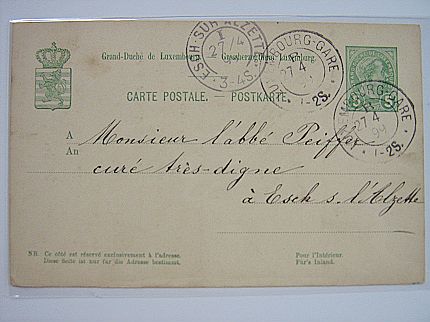 ESCH-SUR-ALZETTE
I
27/4
3-4S.
LUXEMBOURG-GARE
27 4
1-2S.
Grand-Duché de Luxembourg. Grossherzogthum Luxemburg.
CARTE POSTALE. — POSTKARTE.
5 5
LUXEMBOURG-GARE
27 4
99
1-2S.
A
An
Monsieur l'abbé Peiffer
curé très-digne
à Esch s. l'Alzette
NB. Ce côté est réservé exclusivement à l'adresse.
Diese Seite ist nur für die Adresse bestimmt.
Pour l'Intérieur.
Für's Inland.